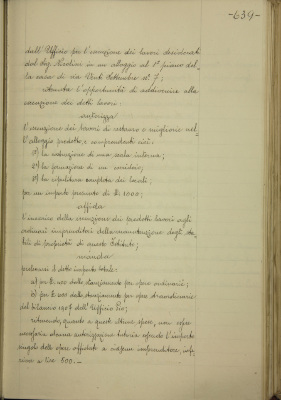 -639-
dall'Ufficio per l'esecuzione dei lavori desiderati
dal Sig. in un alloggio al 1° piano del-
la casa di via Venti Settembre n° 7;
ritenuta l'opportunità di addivenire alla
esecuzione dei detti lavori:
autorizza
l'esecuzione dei lavori di restauro e migliorie nel-
l'alloggio predetto, e comprendenti cioè:
1°) la costruzione di una scala interna;
2°) la formazione di un corridoio;
3°) la ripulitura completa dei locali;
per un importo presunto di L. 1000;
affida
l'incarico della esecuzione dei predetti lavori agli
ordinari imprenditori della manutenzione degli sta-
bili di proprietà di questo Istituto;
manda
prelevarsi il detto importo totale:
a) per L. dallo stanziamento per opere ordinarie;
b) per L. dallo stanziamento per opere straordinarie
del bilancio 1907 dell'Ufficio Pio;
ritenendo, quanto a queste ultime spese, non essere
necessaria alcuna autorizzazione tutoria essendo l'importo
singolo delle opere affidate a ciascun imprenditore, infe-
riore a Lire 500.—